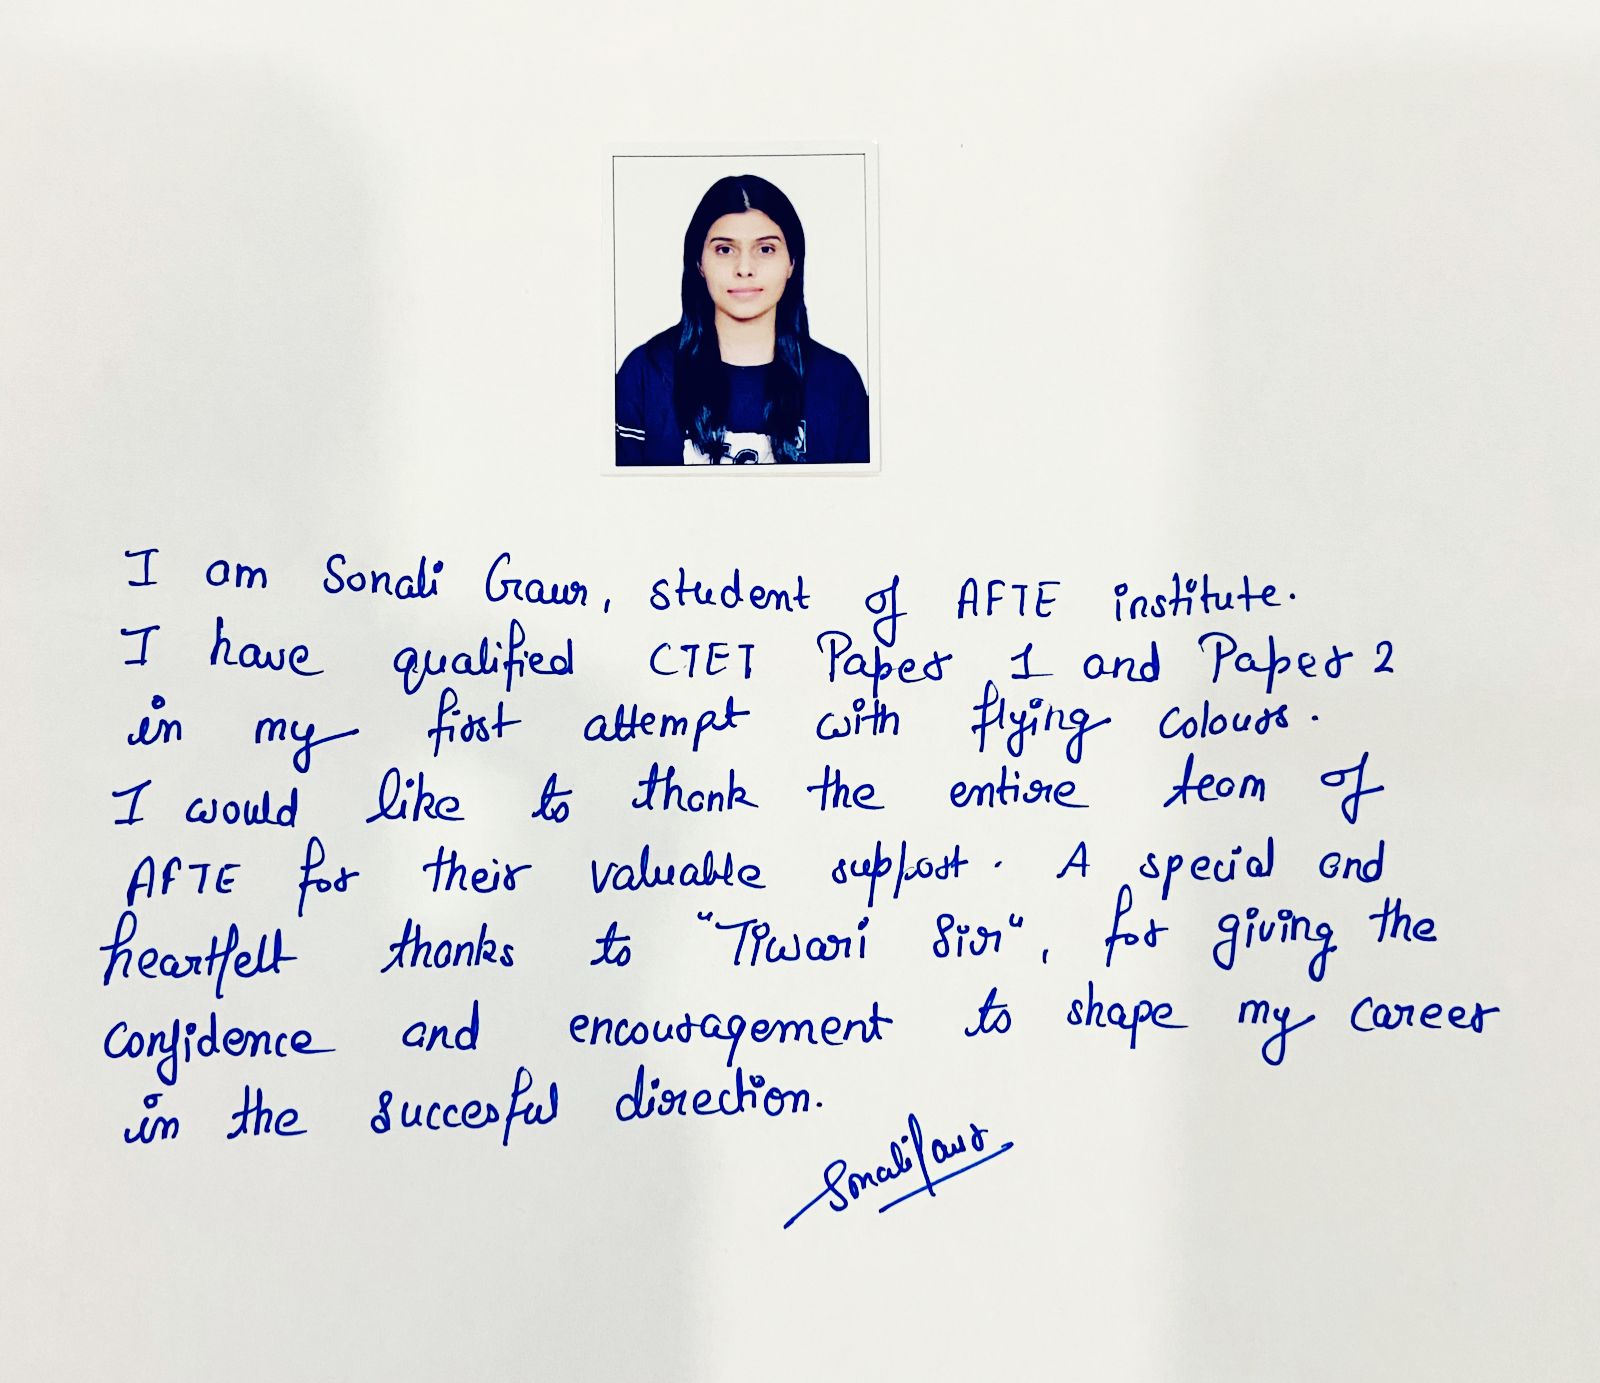 I am Sonali Gaur, student of AFTE institute.
I have qualified CTET Paper 1 and Paper 2
in my first attempt with flying colours.
I would like to thank the entire team of
AFTE for their valuable support. A special and
heartfelt thanks to "Tiwari Sir", for giving the
confidence and encouragement to shape my career
in the succesful direction.
Sonali Gaur